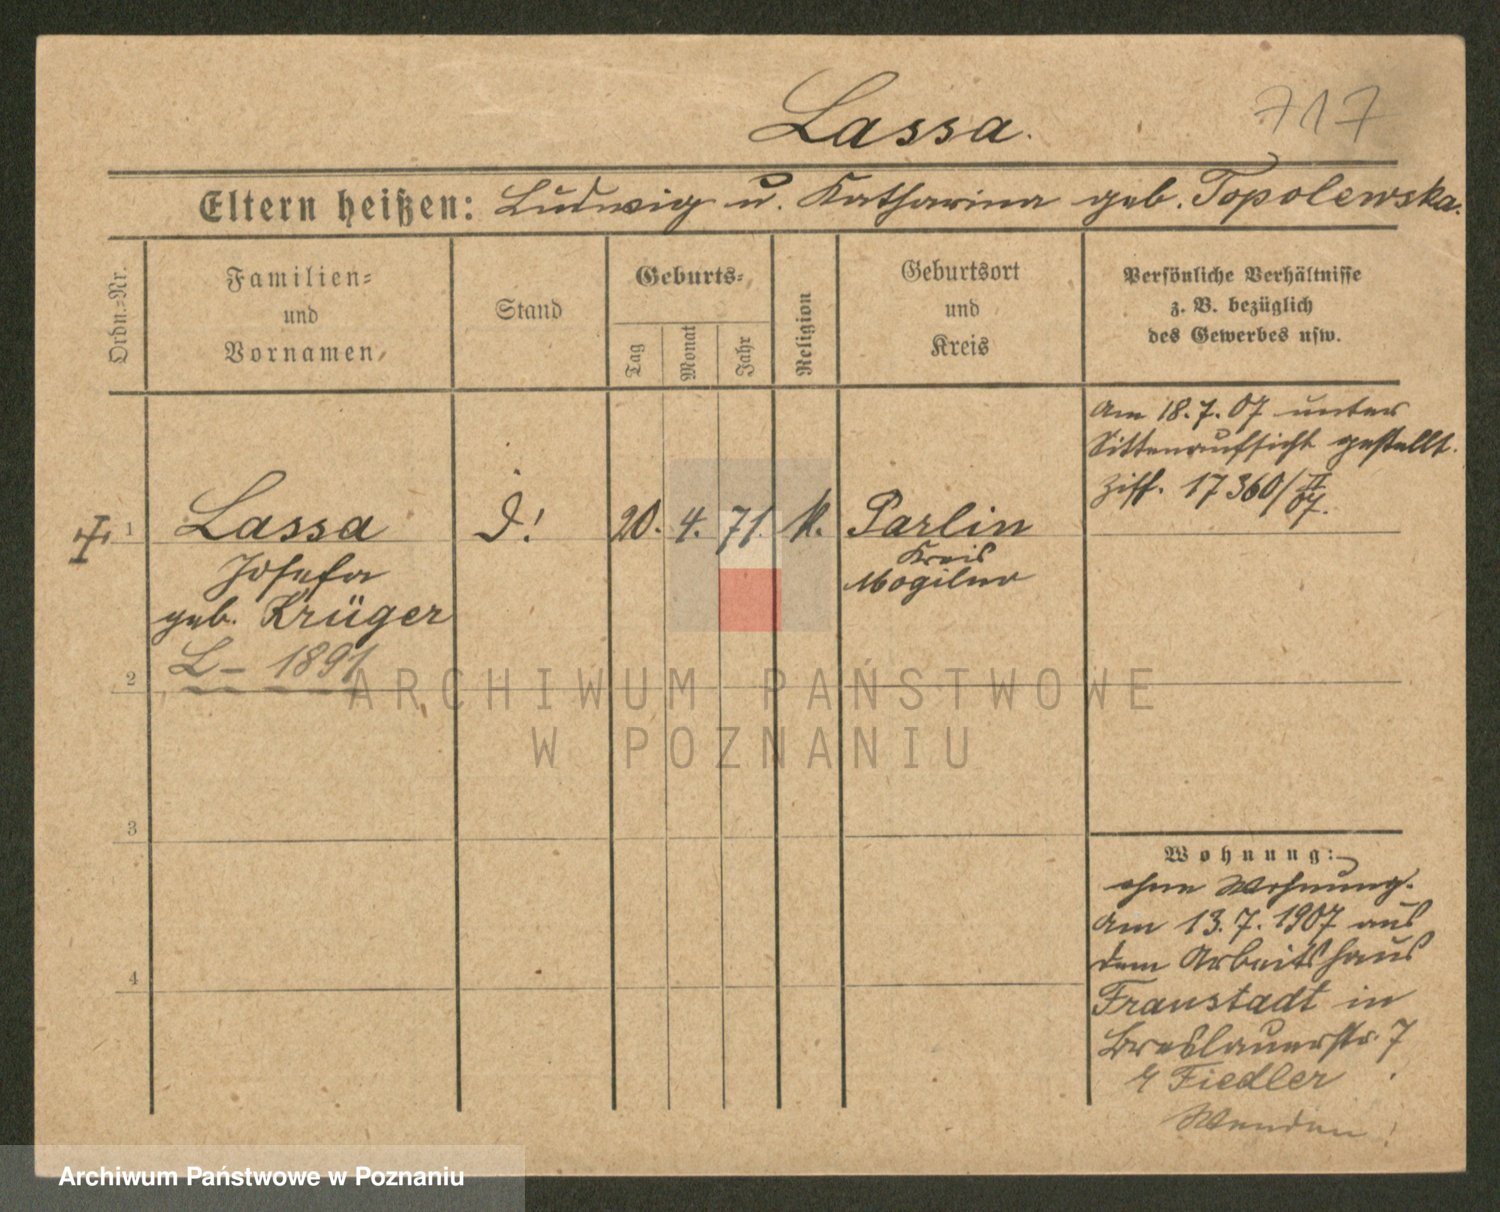 Lassa. 717
Eltern heißen: Ludwig u. Katharina geb. Topolewska.
Ordn.-Nr.
Familien-
und
Vornamen
Stand
Geburts-
Tag
Monat
Jahr
Religion
Geburtsort
und
Kreis
Persönliche Verhältnisse
z. B. bezüglich
des Gewerbes usw.
Am 18.7.07 unter
Sittenaufsicht gestellt.
Ziff. 17360/II 07.
1 Lassa 20. 4. 71. k. Parlin
Josefa
geb. Krüger
Kreis
Mogilno
L - 1891
2
3
4
Wohnung:
ohne Wohnung.
Am 13.7.1907 aus
dem Arbeitshaus
Fraustadt in
Breslauerstr. 7
Fiedler
Wenden!
ARCHIWUM PAŃSTWOWE
W POZNANIU
Archiwum Państwowe w Poznaniu